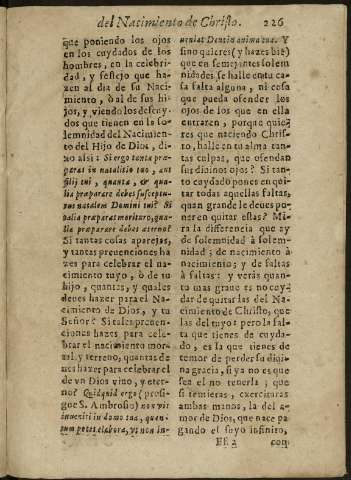 del Nacimiento de Christo. 226
que poniendo los ojos
en los cuydados de los
hombres, en la celebri-
dad, y festejo que ha-
zen al dia de su Naci-
miento, ò al de sus hi-
jos, y viendo los descuy-
dos que tienen en la so-
lemnidad del Nacimien-
to del Hijo de Dios, di-
xo assi: Si ergo tanta præ-
paras in natalitio tuo, aut
filij tui, quanta, & qua-
lia præparare debes susceptu-
rus natalem Domini tui? Si
talia præparas morituro, qua-
lia præparare debes æterno?
Si tantas cosas aparejas,
y tantas preuenciones ha-
zes para celebrar el na-
cimiento tuyo, ò de tu
hijo, quantas, y quales
deues hazer para el Na-
cimiento de Dios, y tu
Señor? Si tales preuen-
ciones hazes para cele-
brar el nacimiento mor-
tal, y terreno, quantas de-
ues hazer para celebrar el
de vn Dios vino, y eter-
no? Quidquid ergo (prosi-
gue S. Ambrosio) non vis
inueniri in domo tua, quan-
tum potes elabora, vt non in-
ueniat Deus in anima tua. Y
si no quieres (y hazes biē)
que en semejantes solem
nidades se halle en tu ca-
sa falta alguna, ni cosa
que pueda ofender los
ojos de los que en ella
entraren, porque quie-
res que naciendo Chris-
to, halle en tu alma tan-
tas culpas, que ofendan
sus diuinos ojos? Si tan-
to cuydado pones en qui-
tar todas aquellas faltas,
quan grande le deues po-
ner en quitar estas? Mi-
ra la diferencia que ay
de solemnidad à solem-
nidad; de nacimiento à
nacimiento; y de faltas
à faltas: y veràs quan-
to mas graue es no cuy-
dar de quitar las del Na-
cimiento de Christo, que
las del tuyo: pero la fal-
ta que tienes de cuyda-
do, es la que tienes de
temor de perder su diui-
na gracia, si ya no es que
sea el no tenerla; que
si temieras, exercitaras
ambas manos, la del a-
mor de Dios, que nace pa-
gando el suyo infinito,
Ff 2 com